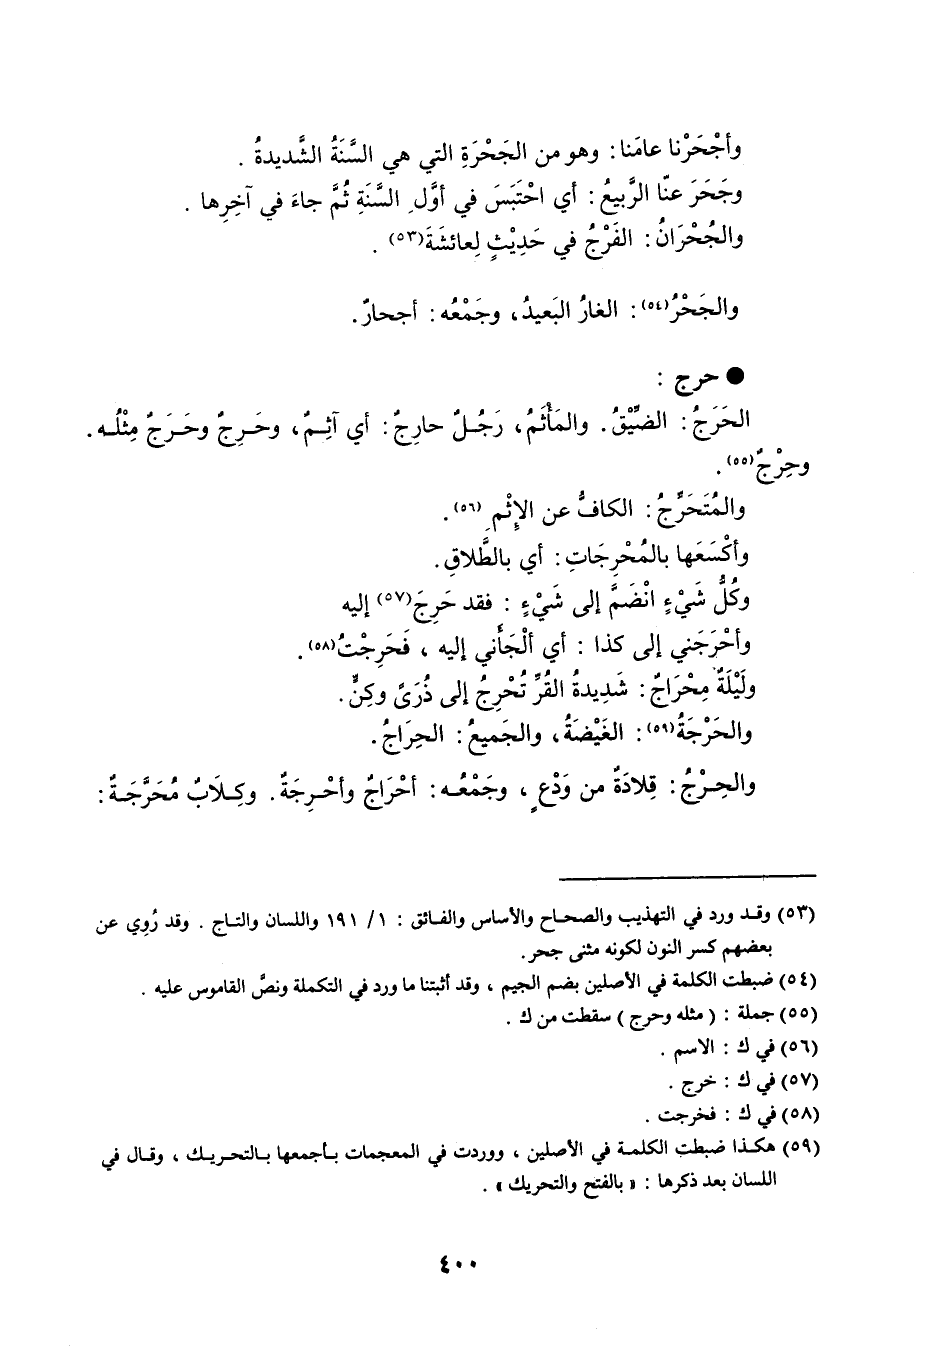 وأجْحَرْنا عامَنا: وهو من الجَحْرَةِ التي هي السَّنَةُ الشَّديدةُ .
وجَحَرَ عنّا الرَّبيعُ: أي احْتَبَسَ في أوَّلِ السَّنَةِ ثُمَّ جاءَ في آخِرِها .
والجُحْرَانُ: الفَرْجُ في حَدِيْثٍ لِعائشَةَ(٥٣) .
والجَحْرُ(٥٤): الغارُ البَعيدُ، وجَمْعُه: أجحارٌ.
● حرج :
الحَرَجُ: الضِّيْقُ. والمَأْثَمُ، رَجُلٌ حارِجٌ: أي آثِمٌ، وحَرِجٌ وحَرَجٌ مِثْلُه.
وحِرْجٌ(٥٥).
والمُتَحَرِّجُ: الكافُّ عن الإِثْمِ(٥٦).
وأكْسَعَها بالمُحْرِجَاتِ: أي بالطَّلاقِ.
وكُلُّ شَيْءٍ انْضَمَّ إلى شَيْءٍ : فقد حَرِجَ(٥٧) إليه
وأحْرَجَني إلى كذا : أي ألْجَأَني إليه ، فَحَرِجْتُ(٥٨).
ولَيْلَةٌ مِحْرَاجٌ: شَدِيدةُ القُرِّ تُحْرِجُ إلى ذُرَىً وكِنٍّ.
والحَرْجَةُ(٥٩): الغَيْضَةُ، والجَميعُ: الحِرَاجُ.
والحِرْجُ: قِلادَةٌ من وَدْعٍ ، وجَمْعُه: أحْرَاجٌ وأحْرِجَةٌ. وكِلَابٌ مُحَرَّجَةٌ:
(٥٣) وقد ورد في التهذيب والصحاح والأساس والفائق : ١/ ١٩١ واللسان والتاج . وقد رُوِي عن
بعضهم كسر النون لكونه مثنى جحر.
(٥٤) ضبطت الكلمة في الأصلين بضم الجيم ، وقد أثبتنا ما ورد في التكملة ونصَّ القاموس عليه .
(٥٥) جملة : ( مثله وحرج ) سقطت من ك .
(٥٦) في ك : الاسم .
(٥٧) في ك : خرج .
(٥٨) في ك : فخرجت .
(٥٩) هكذا ضبطت الكلمة في الأصلين ، ووردت في المعجمات بأجمعها بالتحريك ، وقال في
اللسان بعد ذكرها : « بالفتح والتحريك » .
٤٠٠